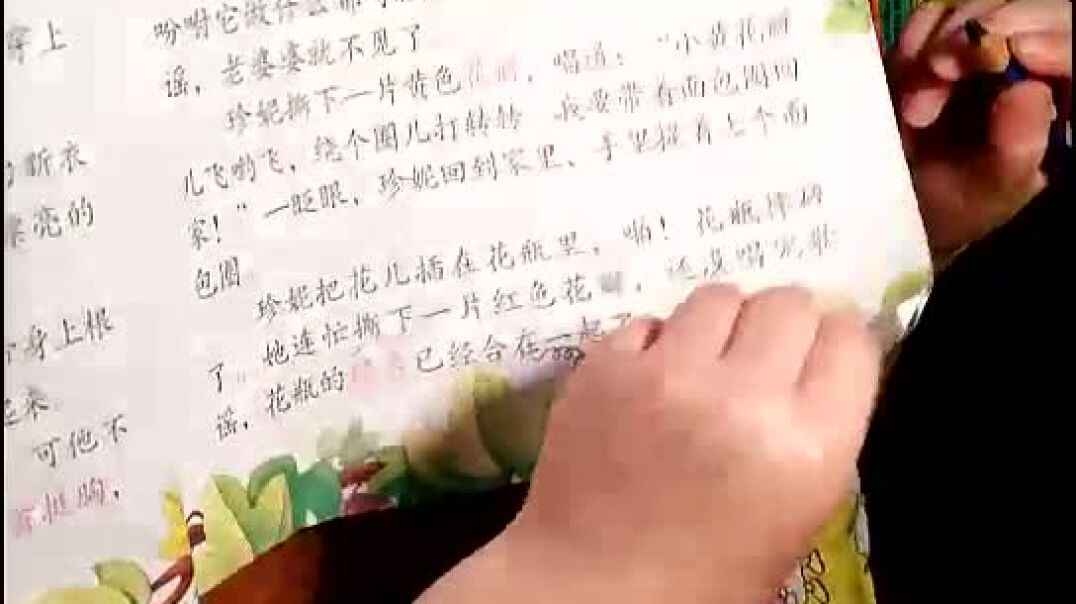 穿上
新衣
漂亮的
身上根
起来
可他不
挺胸，
吩咐它做什么
谣，老婆婆就不见了
珍妮撕下一片黄色花瓣，唱道："小黄花瓣
儿飞哟飞，绕个圈儿打转转 我要带着面包圈回
家！"一眨眼，珍妮回到家里，手里提着七个面
包圈
珍妮把花儿插在花瓶里，啪！花瓶摔碎
了。她连忙撕下一片红色花瓣，还没唱完歌
谣，花瓶的 已经合在一起了